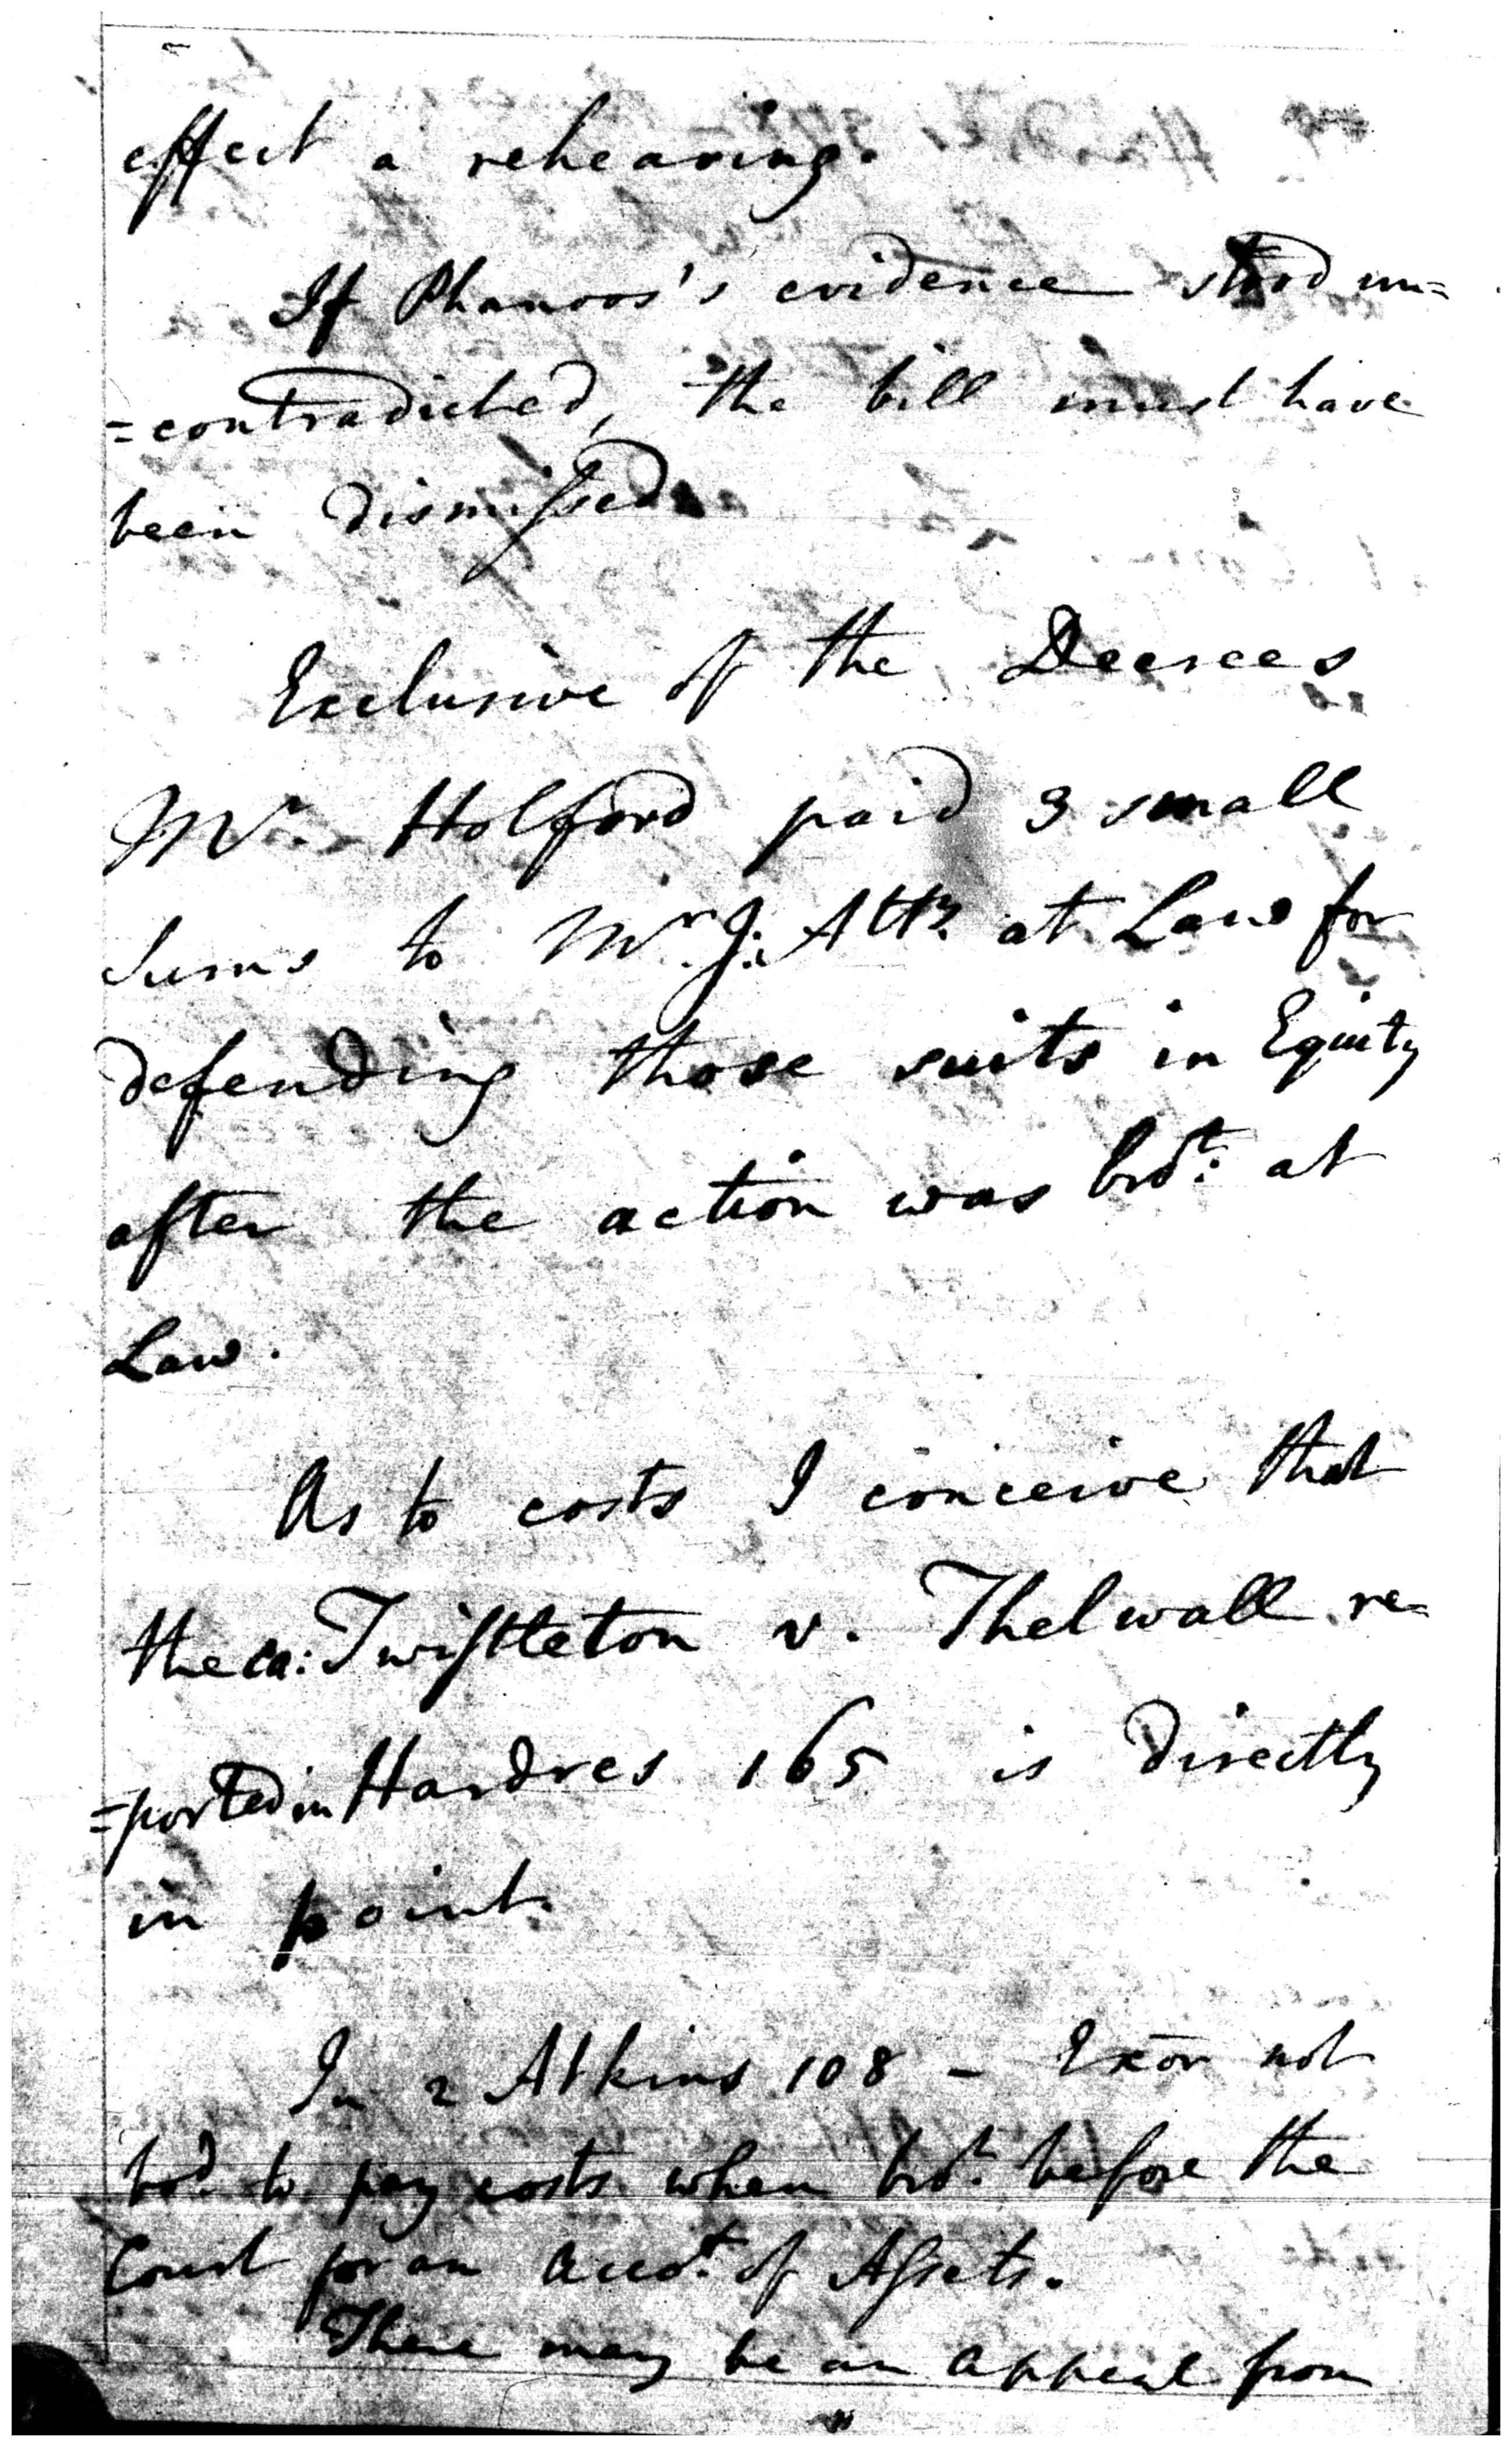 effect a rehearing.
If Phanoos's evidence stood un=
=contradicted, the bill must have
been dismissed
Exclusive of the Decrees
Mr. Holford paid 3 small
Sums to Mr. J: Atty. at Law for
defending those suits in Equity
after the action was brot: at
Law.
As to costs I conceive that
the ca: Twistleton v. Thelwall re=
=ported in Hardres 165 is directly
in point.
In 2 Atkins 108 - Exor not
bod. to pay costs when brot. before the
Court for an accot. of Assets.
There may be an appeal from